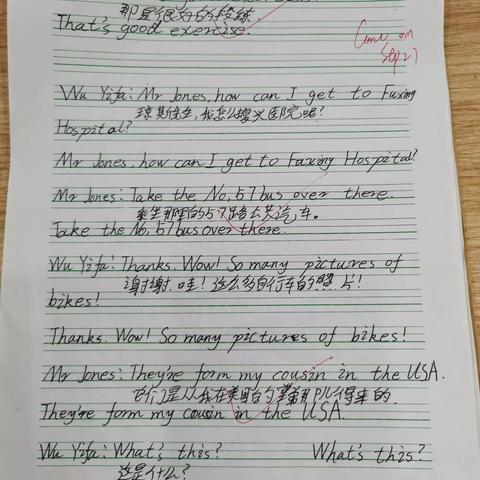 那是很好的锻练
That's good exercise.
Wu Yifa: Mr Jones, how can I get to Fuxing
琼斯先生,我怎么去复兴医院呢?
Hospital?
Mr Jones, how can I get to Faxing Hospital?
Mr Jones: Take the No, 57 bus over there.
乘坐那里的57路公共汽车。
Take the No, 57 bus over there.
Wu Yifa: Thanks. Wow! So many pictures of
谢谢.哇!这么多自行车的照片!
bikes!
Thanks. Wow! So many pictures of bikes!
Mr Jones: They're form my cousin in the USA.
它们是从我在美国的堂弟那儿得来的.
They're form my cousin in the USA.
Wu Yifa: What's this? What's this?
这是什么?